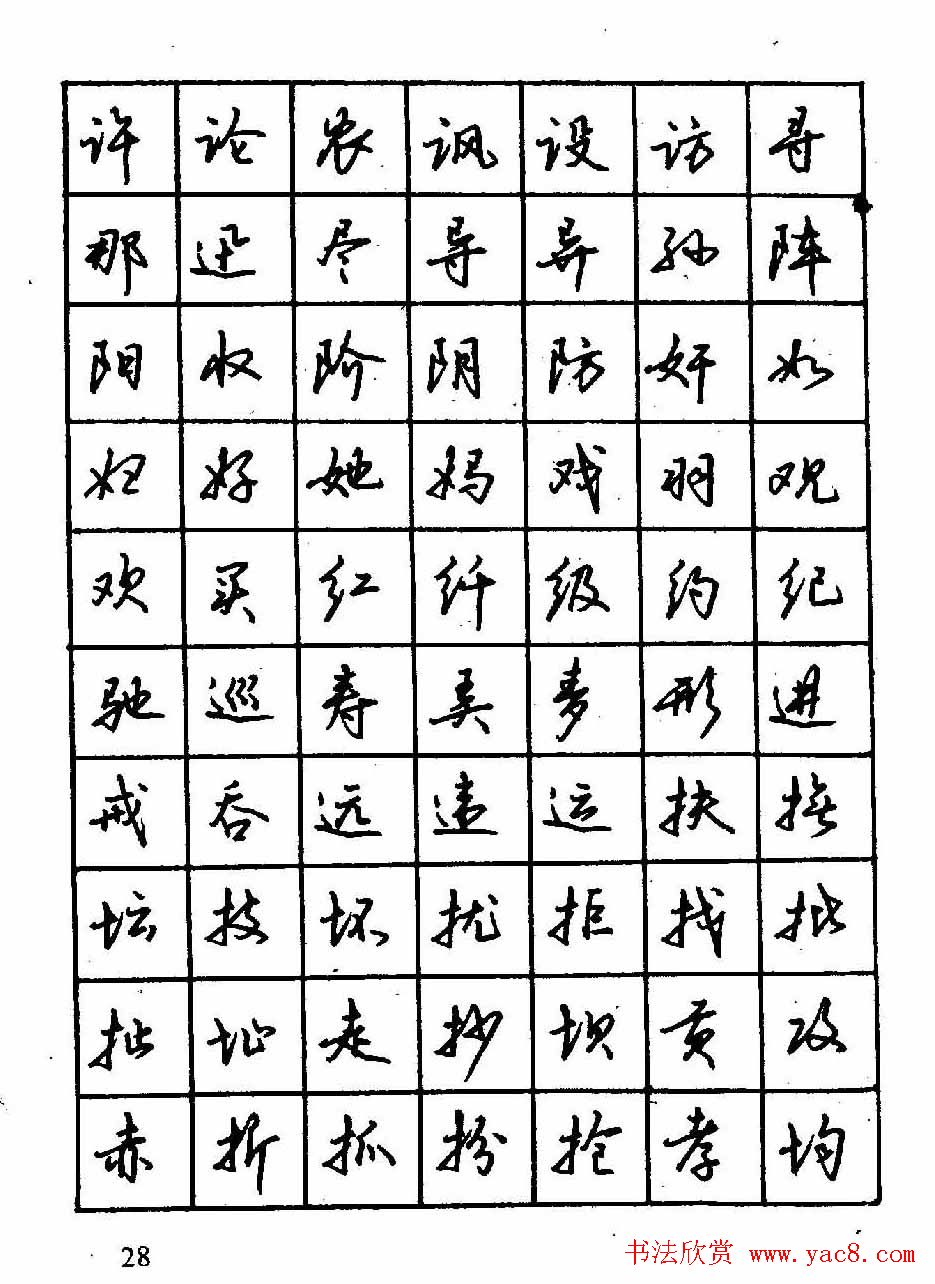 许论农讽设访寻
那迅尽导异孙阵
阳收阶阴防奸如
妇好她妈戏羽观
欢买红纤级约纪
驰巡寿弄麦形进
戒吞远违运扶抚
坛技坏扰拒找批
扯址走抄坝贡攻
赤折抓扮抢孝均
28
书法欣赏 www.yac8.com